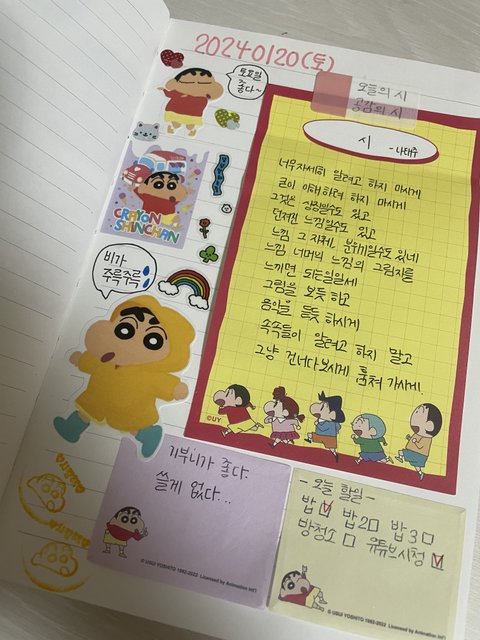 20240120(토)
토요일
좋다~
오늘의 시
공감의 시
시 - 나태주
너무 자세히 알려고 하지 마시게
굳이 이해하려 하지 마시게
그것은 상징일수도 있고
던져진 느낌일수도 있고
느낌 그 자체, 분위기일수도 있네
느낌 너머의 느낌의 그림자를
느끼면 되는일일세
그림을 보듯 하고
음악을 듣듯 하시게
속속들이 알려고 하지 말고
그냥 건너다 보시게 훔쳐 가시게.
CRAYON
SHINCHAN
비가
주륵주륵
©UY
기부니가 좋다.
쓸게 없다...
© USUI YOSHITO 1992-2022 Licensed by Animation Int'l
- 오늘 할일 -
밥1 밥2 밥3
방청소 유튜브시청
© USUI YOSHITO 1992-2022 Licensed by Animation Int'l